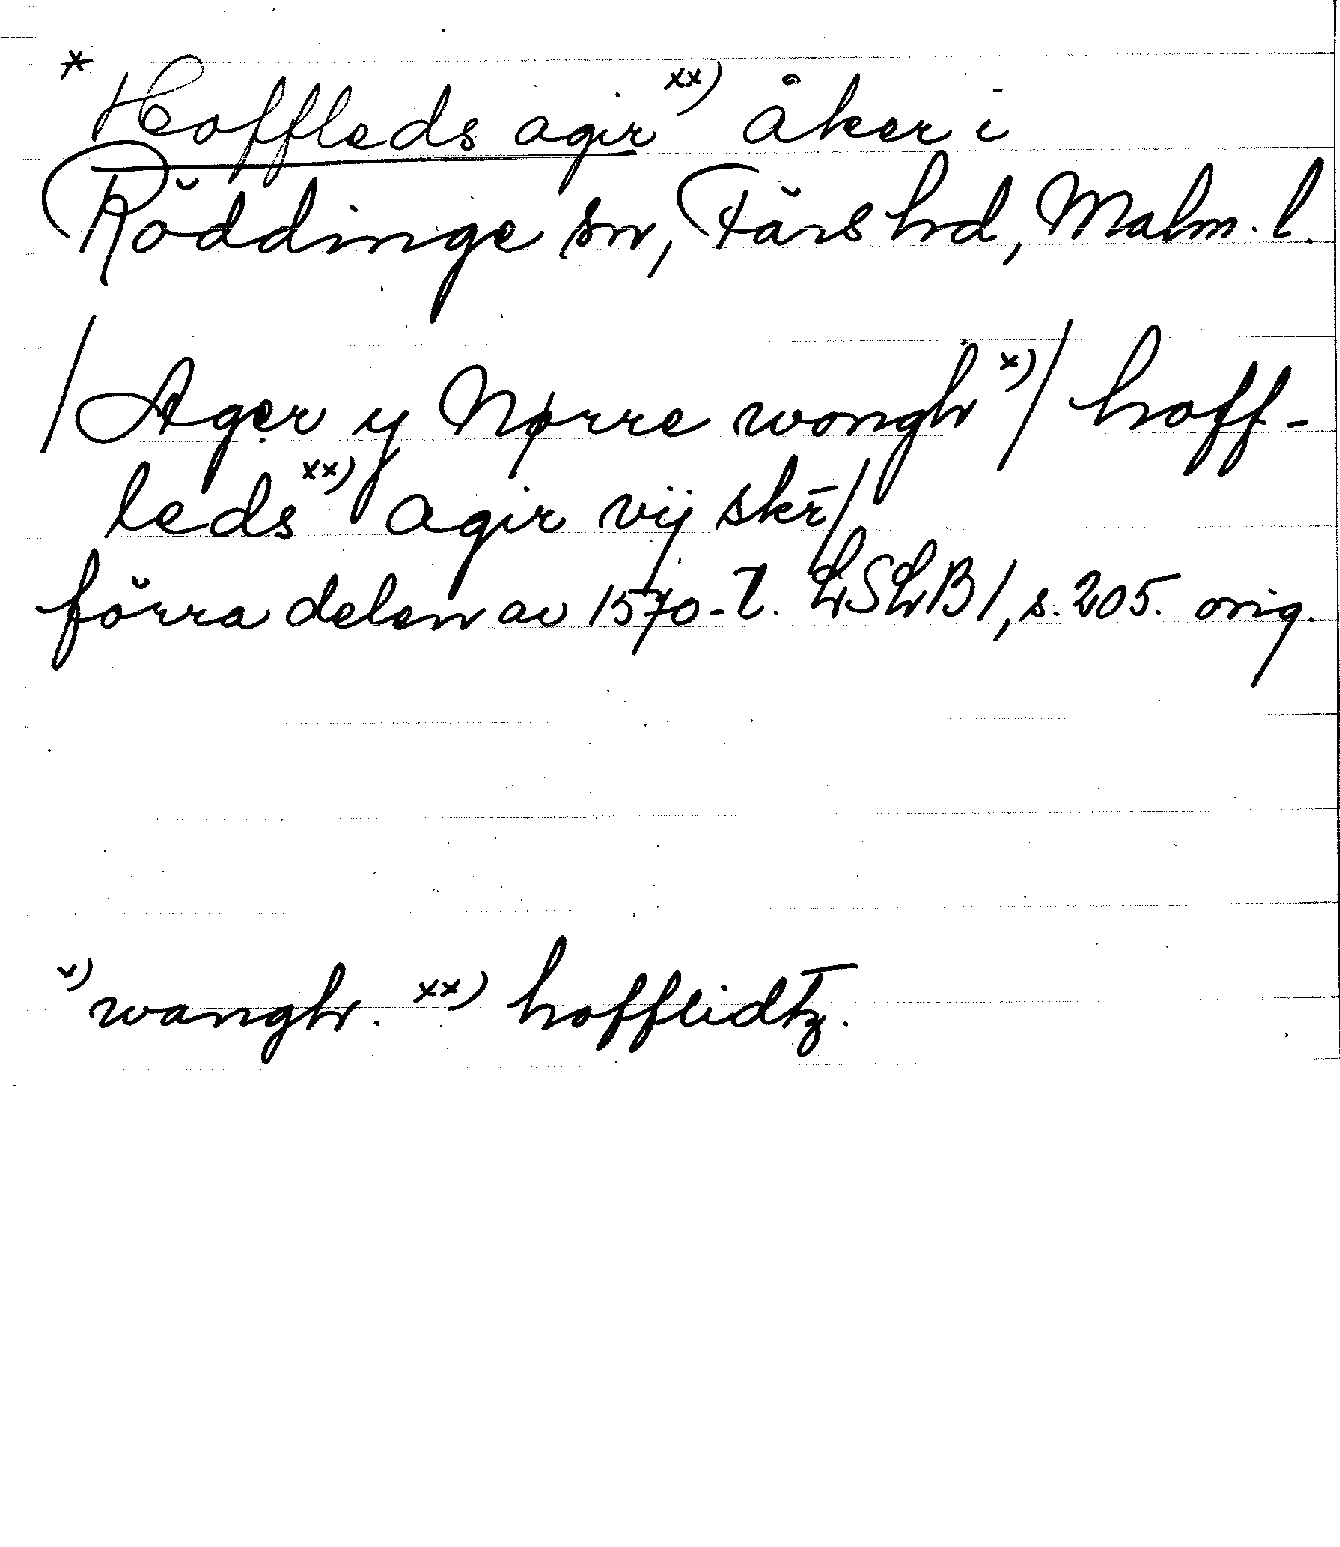 * Hoffleds agir xx) åker i
Röddinge sn, Färs hd, Malm. l.
/Ager y Nørre wongh x)/ hoff-
leds xx) agir vij skr̄/
förra delen av 1570-t. LSLB1, s. 205. orig.
x) wangh. xx) hofflidtz.